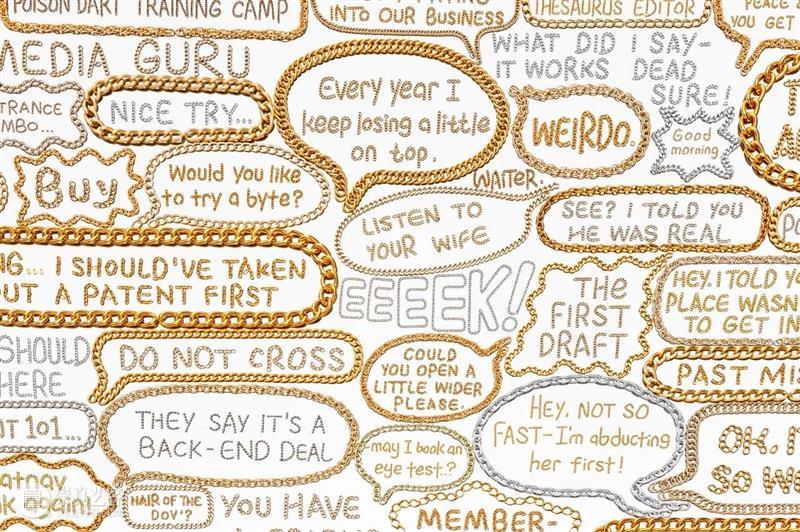 POISON DART TRAINING CAMP
INTO OUR BUSINESS
THESAURUS EDITOR
PEACE &
YOU GET
MEDIA GURU
WHAT DID I SAY-
IT WORKS DEAD
SURE!
TRANCE
MBO...
NICE TRY...
Every year I
keep losing a little
on top.
WEIRDO.
Good
morning
Buy
Would you like
to try a byte?
WAITER.
LISTEN TO
YOUR WIFE
SEE? I TOLD YOU
HE WAS REAL
NG... I SHOULD'VE TAKEN
OUT A PATENT FIRST
EEEEK!
THE
FIRST
DRAFT
HEY, I TOLD YO
PLACE WASN
TO GET IN
SHOULD
HERE
DO NOT CROSS
COULD
YOU OPEN A
LITTLE WIDER
PLEASE.
PAST MIS
AT 101...
THEY SAY IT'S A
BACK-END DEAL
-may I book an
eye test..?
HEY, NOT SO
FAST-I'm abducting
her first!
OK, I
SO W
atnav
k again!
HAIR OF THE
DOV'?
YOU HAVE
MEMBER-